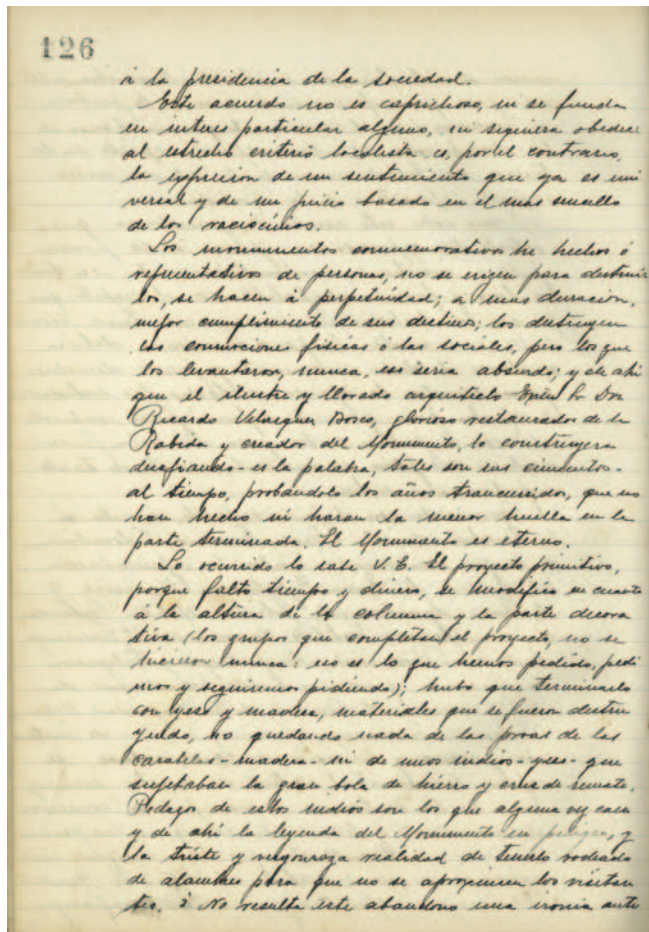 126
á la presidencia de la sociedad.
Este acuerdo no es caprichoso, ni se funda
en interes particular alguno, ni siquiera obedece
al estrecho criterio localista es, por el contrario,
la expresion de un sentimiento que ya es uni
versal y de un juicio basado en el mas sencillo
de los raciocinios.
Los monumentos conmemorativos de hechos ó
representativos de personas, no se erigen para destruir
los, se hacen á perpetuidad; a mas duracion,
mejor cumplimiento de sus destinos; los destruyen
las conmociones fisicas ó las sociales, pero los que
los levantaron, nunca, eso seria absurdo; y de ahi
que el ilustre y llorado arquitecto Exmo Sr Don
Ricardo Velazquez Bosco, glorioso restaurador de la
Rabida y creador del Monumento, lo construyera
desafiando - es la palabra, tales son sus cimientos -
al tiempo, probandolo los años trancurridos, que no
han hecho ni haran la menor huella en la
parte terminada. El Monumento es eterno.
Lo ocurrido lo sabe V. E. El proyecto primitivo,
porque falto tiempo y dinero, se modifico en cuanto
á la altura de la columna y la parte decora
tiva (los grupos que completan el proyecto, no se
hicieron nunca: eso es lo que hemos pedido, pedi
mos y seguiremos pidiendo); hubo que terminarlo
con yeso y madera, materiales que se fueron destru
yendo, no quedando nada de las proas de las
carabelas - madera - ni de unos indios - yeso - que
sujetaban la gran bola de hierro y cruz de remate.
Pedazos de estos indios son los que alguna vez caen
y de ahi la leyenda del Monumento en peligro, y
la triste y vergonzoza realidad de tenerlo rodeado
de alambres para que no se aproximen los visitan
tes. ¿ No resulta este abandono una ironia ante